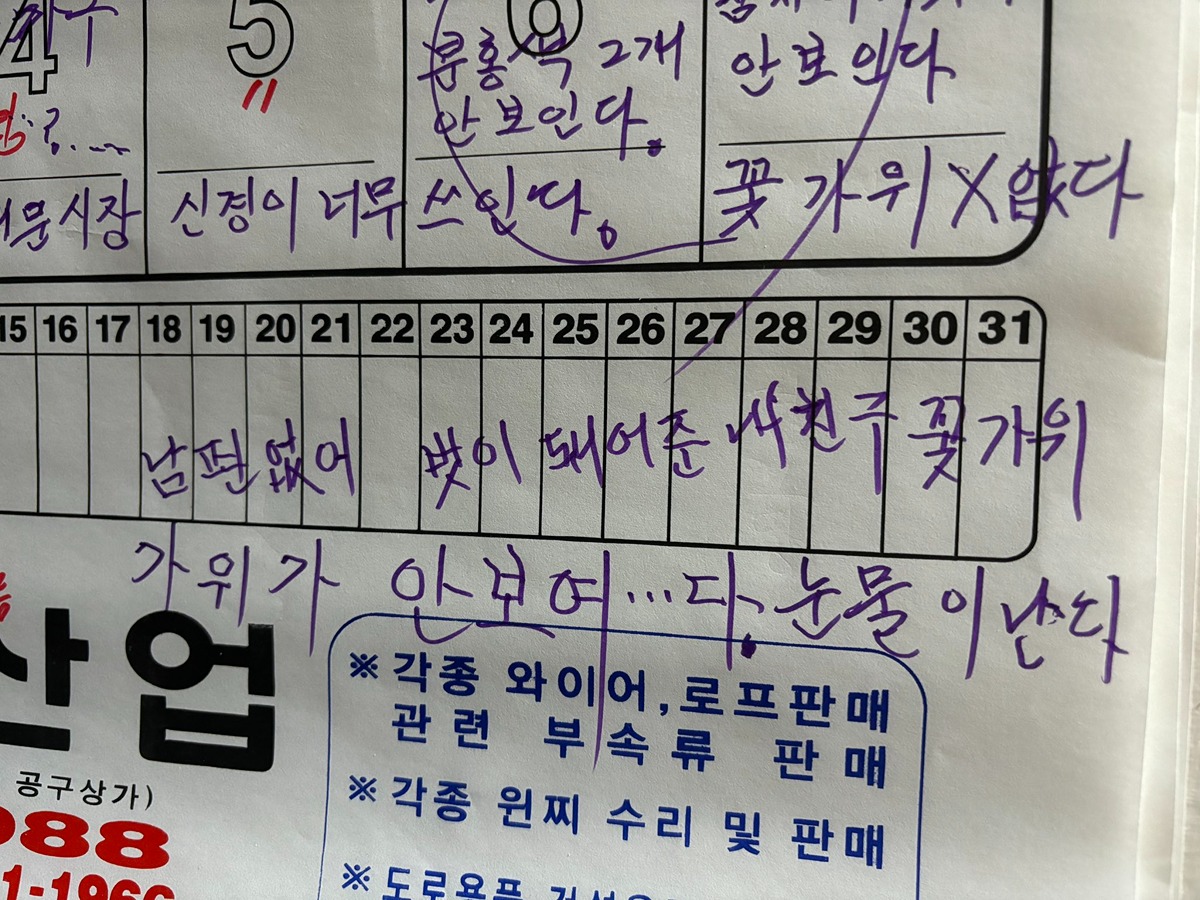 4 5 6
분홍색 2개 안보인다
안보인다.
신경이 너무 쓰인다. 꽃 가위 X 없다
15 16 17 18 19 20 21 22 23 24 25 26 27 28 29 30 31
남편없어 벗이 돼어준 꽃 가위
가위가 안보여...다. 눈물이 난다
산업
※ 각종 와이어,로프판매
관련 부속류 판매
공구상가)
※ 각종 윈찌 수리 및 판매
988
1-1966